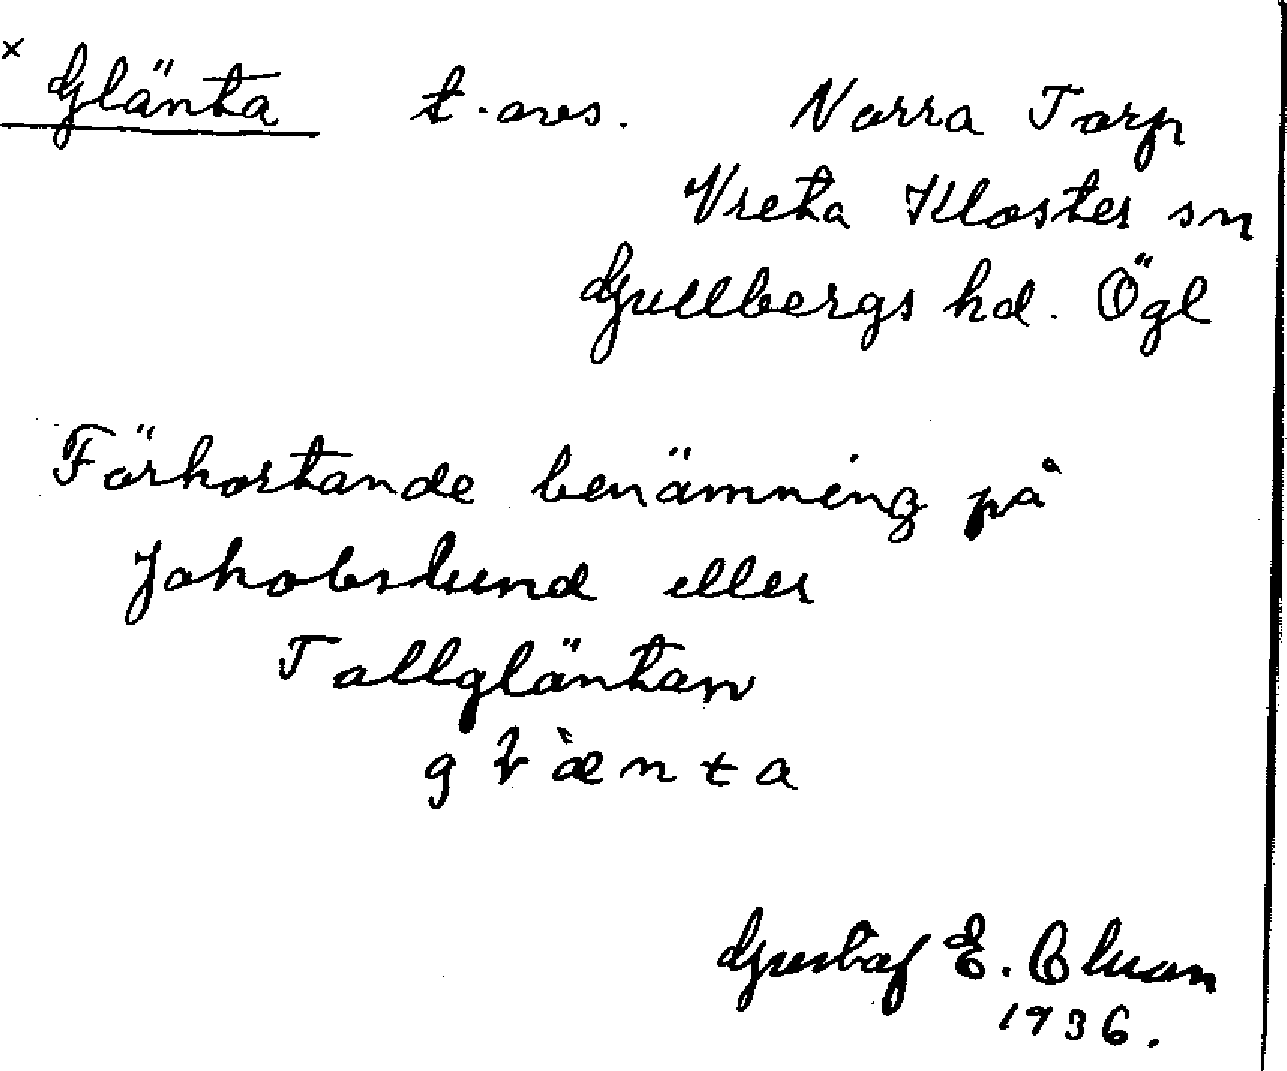 × Glänta t. avs. Norra Torp
Vreta Kloster sn
Gullbergs hd. Ögl
Förkortande benämning på
Jakobslund eller
Tallgläntan
Gustaf E.
1936.